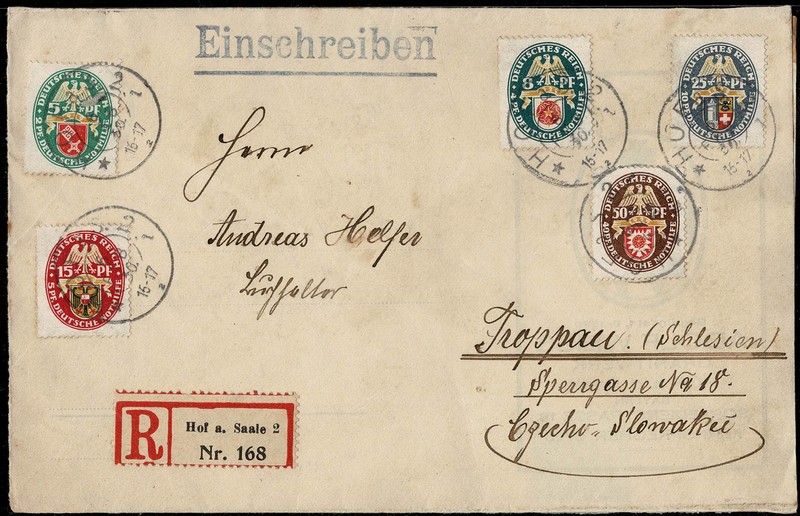 Einschreiben
DEUTSCHES REICH
5 PF
2 PF. DEUTSCHE NOTHILFE
16-17
DEUTSCHES REICH
8 PF
4 PF. DEUTSCHE NOTHILFE
HO
16-17
DEUTSCHES REICH
25 PF
10 PF. DEUTSCHE NOTHILFE
HO
16-17
Herrn
DEUTSCHES REICH
50 PF
40 PF. DEUTSCHE NOTHILFE
Andreas Helfer
Buchhalter
DEUTSCHES REICH
15 PF
5 PF. DEUTSCHE NOTHILFE
16-17
Troppau. (Schlesien)
Sperrgasse No 18.
Czecho-Slowakei
R
Hof a. Saale 2
Nr. 168